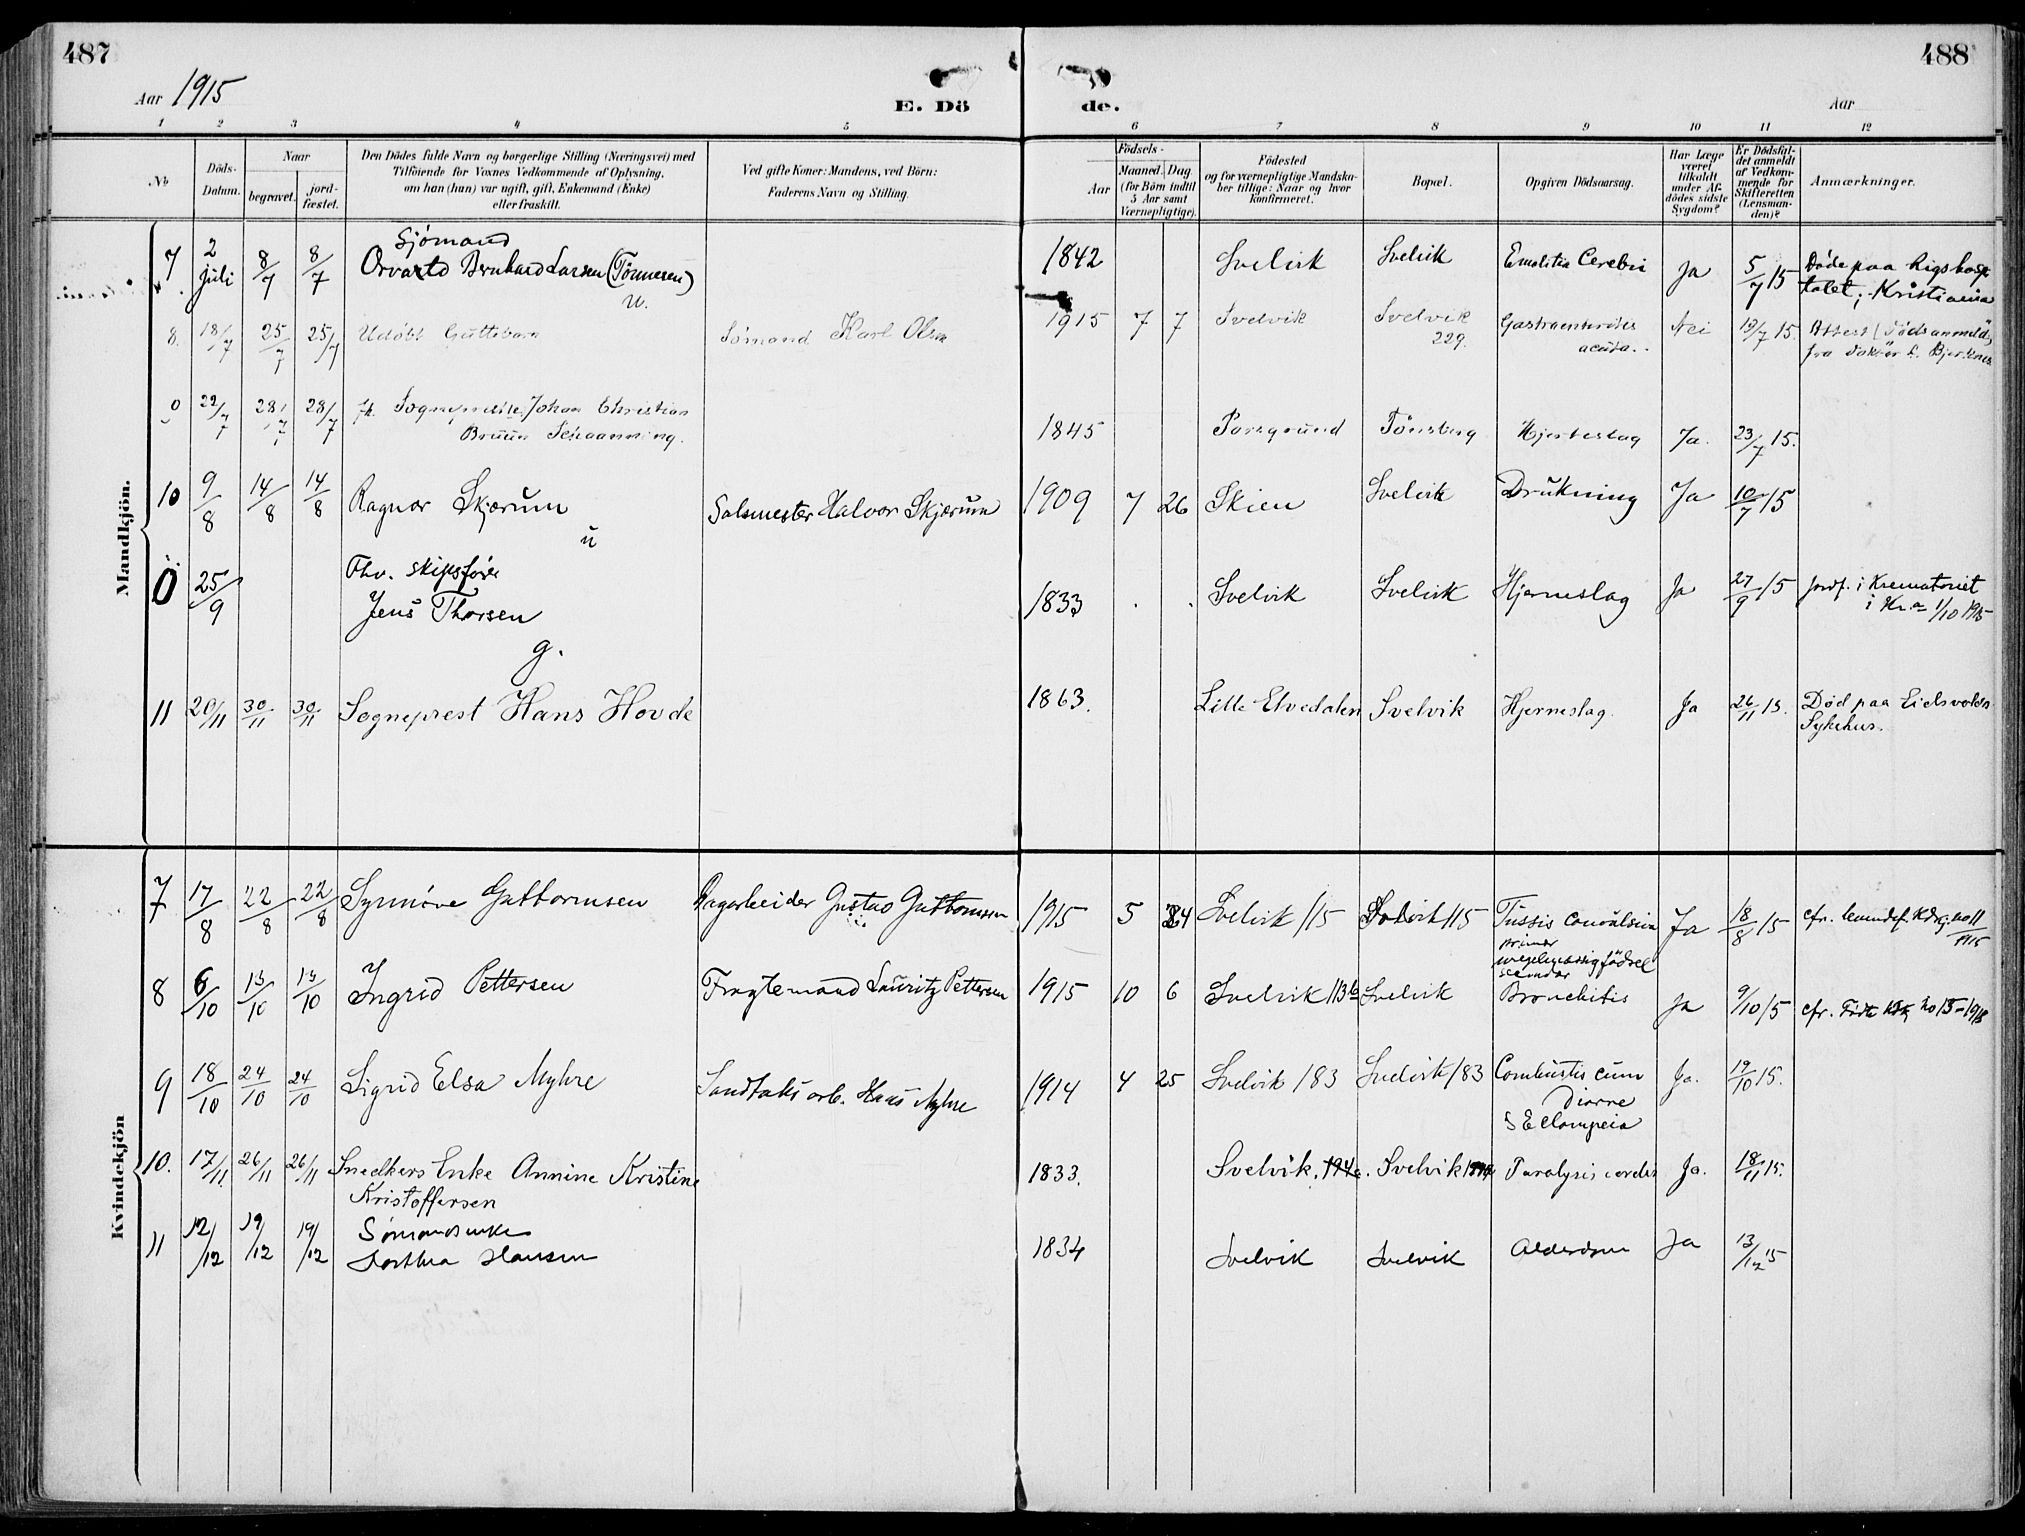 487
488
Aar 1915
E. Dö
de.
Aar
1 2 3 4 5 6 7 8 9 10 11 12
No
Döds-
Datum.
Naar
begravet.
jord-
fæstet.
Den Dödes fulde Navn og borgerlige Stilling (Næringsvei) med
Tilföiende for Voxnes Vedkommende af Oplysning,
om han (hun) var ugift, gift, Enkemand (Enke)
eller fraskilt.
Ved gifte Koner: Mandens, ved Börn:
Faderens Navn og Stilling.
Födsels-
Aar
Maaned. Dag.
(for Börn indtil
5 Aar samt
Værnepligtige).
Födested
og for værnepligtige Mandska-
ber tillige: Naar og hvor
konfirmeret.
Bopæl.
Opgiven Dödsaarsag.
Har Læge
været
tilkaldt
under Af-
dödes sidste
Sygdom?
Er Dödsfal-
det anmeldt
af Vedkom-
mende for
Skifteretten
(Lensman-
den)?
Anmærkninger.
Mandkjön.
7 2 juli 8/7 8/7 Sjömand
Orvald Bernhard Larsen (Tönnesen)
u.
1842 Svelvik Svelvik Emolitia Cerebri Ja 5/7 15 Döde paa Rigshospi
talet, Kristiania
8. 18/7 25/7 25/7 Udöbt Guttebarn Sömand Karl Olsen 1915 7 7 Svelvik Svelvik
229. Gastroenteritis
acuta. Nei 19/7 15. Attest (Dödsanmeld)
fra Doktor Bjerknes
9 22/7 28/7 28/7 fh. Sogneprest Johan Christian
Bruun Schaanning.
1845 Porsgrund Tönsberg Hjerteslag Ja. 23/7 15.
10 9/8 14/8 14/8 Ragnar Skjærum Salsmester Halvor Skjærum 1909 7 26 Skien Svelvik Drukning Ja 10/7 15
u
0 25/9 Fhv. skipsförer
Jens Thorsen
g.
1833 Svelvik Svelvik Hjerneslag Ja 27/9 15 jordf. i Krematoriet
i Kr.a 1/10 1915
11 20/11 30/11 30/11 Sogneprest Hans Hovde 1863. Lille Elvedalen Svelvik Hjerneslag. Ja 26/11 15. Död paa Eidsvolds
Sykehus.
Kvindekjön
7 17/8 22/8 22/8 Synnöve Guttormsen Dagarbeider Gustav Guttormsen 1915 5 24 Svelvik 115 Svelvik 115 Tussis convulsiva Ja 18/8 15 cfr.
8 6/10 13/10 13/10 Ingrid Pettersen Fragtemand Lauritz Pettersen 1915 10 6 Svelvik 113b Svelvik primær
uregelmæssig födsel
secundær
Bronchitis Ja 9/10 15 cfr. Födte Kdk No 15 - 1915
9 18/10 24/10 24/10 Sigrid Elsa Myhre Sandtaksarb. Hans Myhre 1914 4 25 Svelvik 183 Svelvik 183 Combustis cum
Diarre
S Eclampsia Ja. 19/10 15.
10. 17/11 26/11 26/11 Snedkers Enke Annine Kristine
Kristoffersen
1833. Svelvik. Svelvik Paralysis cordis Ja. 18/11 15.
11 12/12 19/12 19/12 Sömandsenke
Dorthea Hansen
1834 Svelvik Svelvik Alderdom Ja 13/12 15